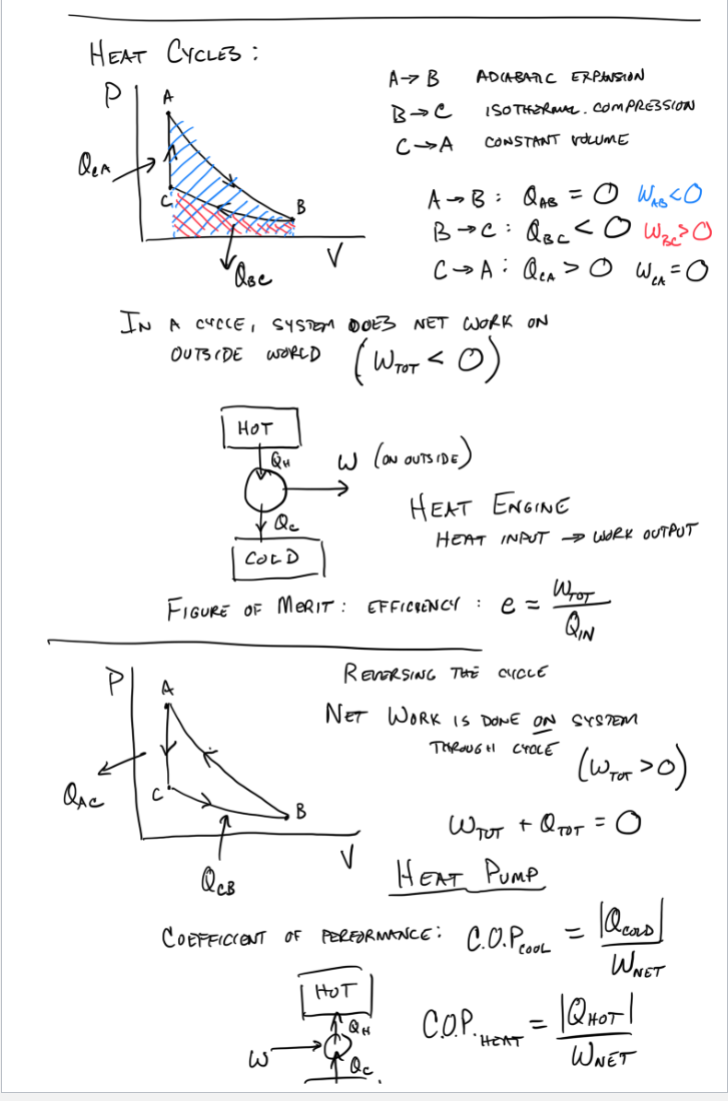 HEAT CYCLES:
P
A
C
B
V
Q_CA
Q_BC
A→B ADIABATIC EXPANSION
B→C ISOTHERMAL. COMPRESSION
C→A CONSTANT VOLUME
A→B: Q_AB = 0 W_AB<0
B→C: Q_BC < 0 W_BC>0
C→A: Q_CA > 0 W_CA=0
IN A CYCLE, SYSTEM DOES NET WORK ON
OUTSIDE WORLD (W_TOT < 0)
HOT
Q_H
W (ON OUTSIDE)
Q_C
COLD
HEAT ENGINE
HEAT INPUT → WORK OUTPUT
FIGURE OF MERIT: EFFICIENCY: e = W_TOT / Q_IN
REVERSING THE CYCLE
P
A
C
B
V
Q_AC
Q_CB
NET WORK IS DONE ON SYSTEM
THROUGH CYCLE (W_TOT > 0)
W_TOT + Q_TOT = 0
HEAT PUMP
COEFFICIENT OF PERFORMANCE: C.O.P_COOL = |Q_COLD| / W_NET
HOT
Q_H
W
Q_C.
C.O.P._HEAT = |Q_HOT| / W_NET